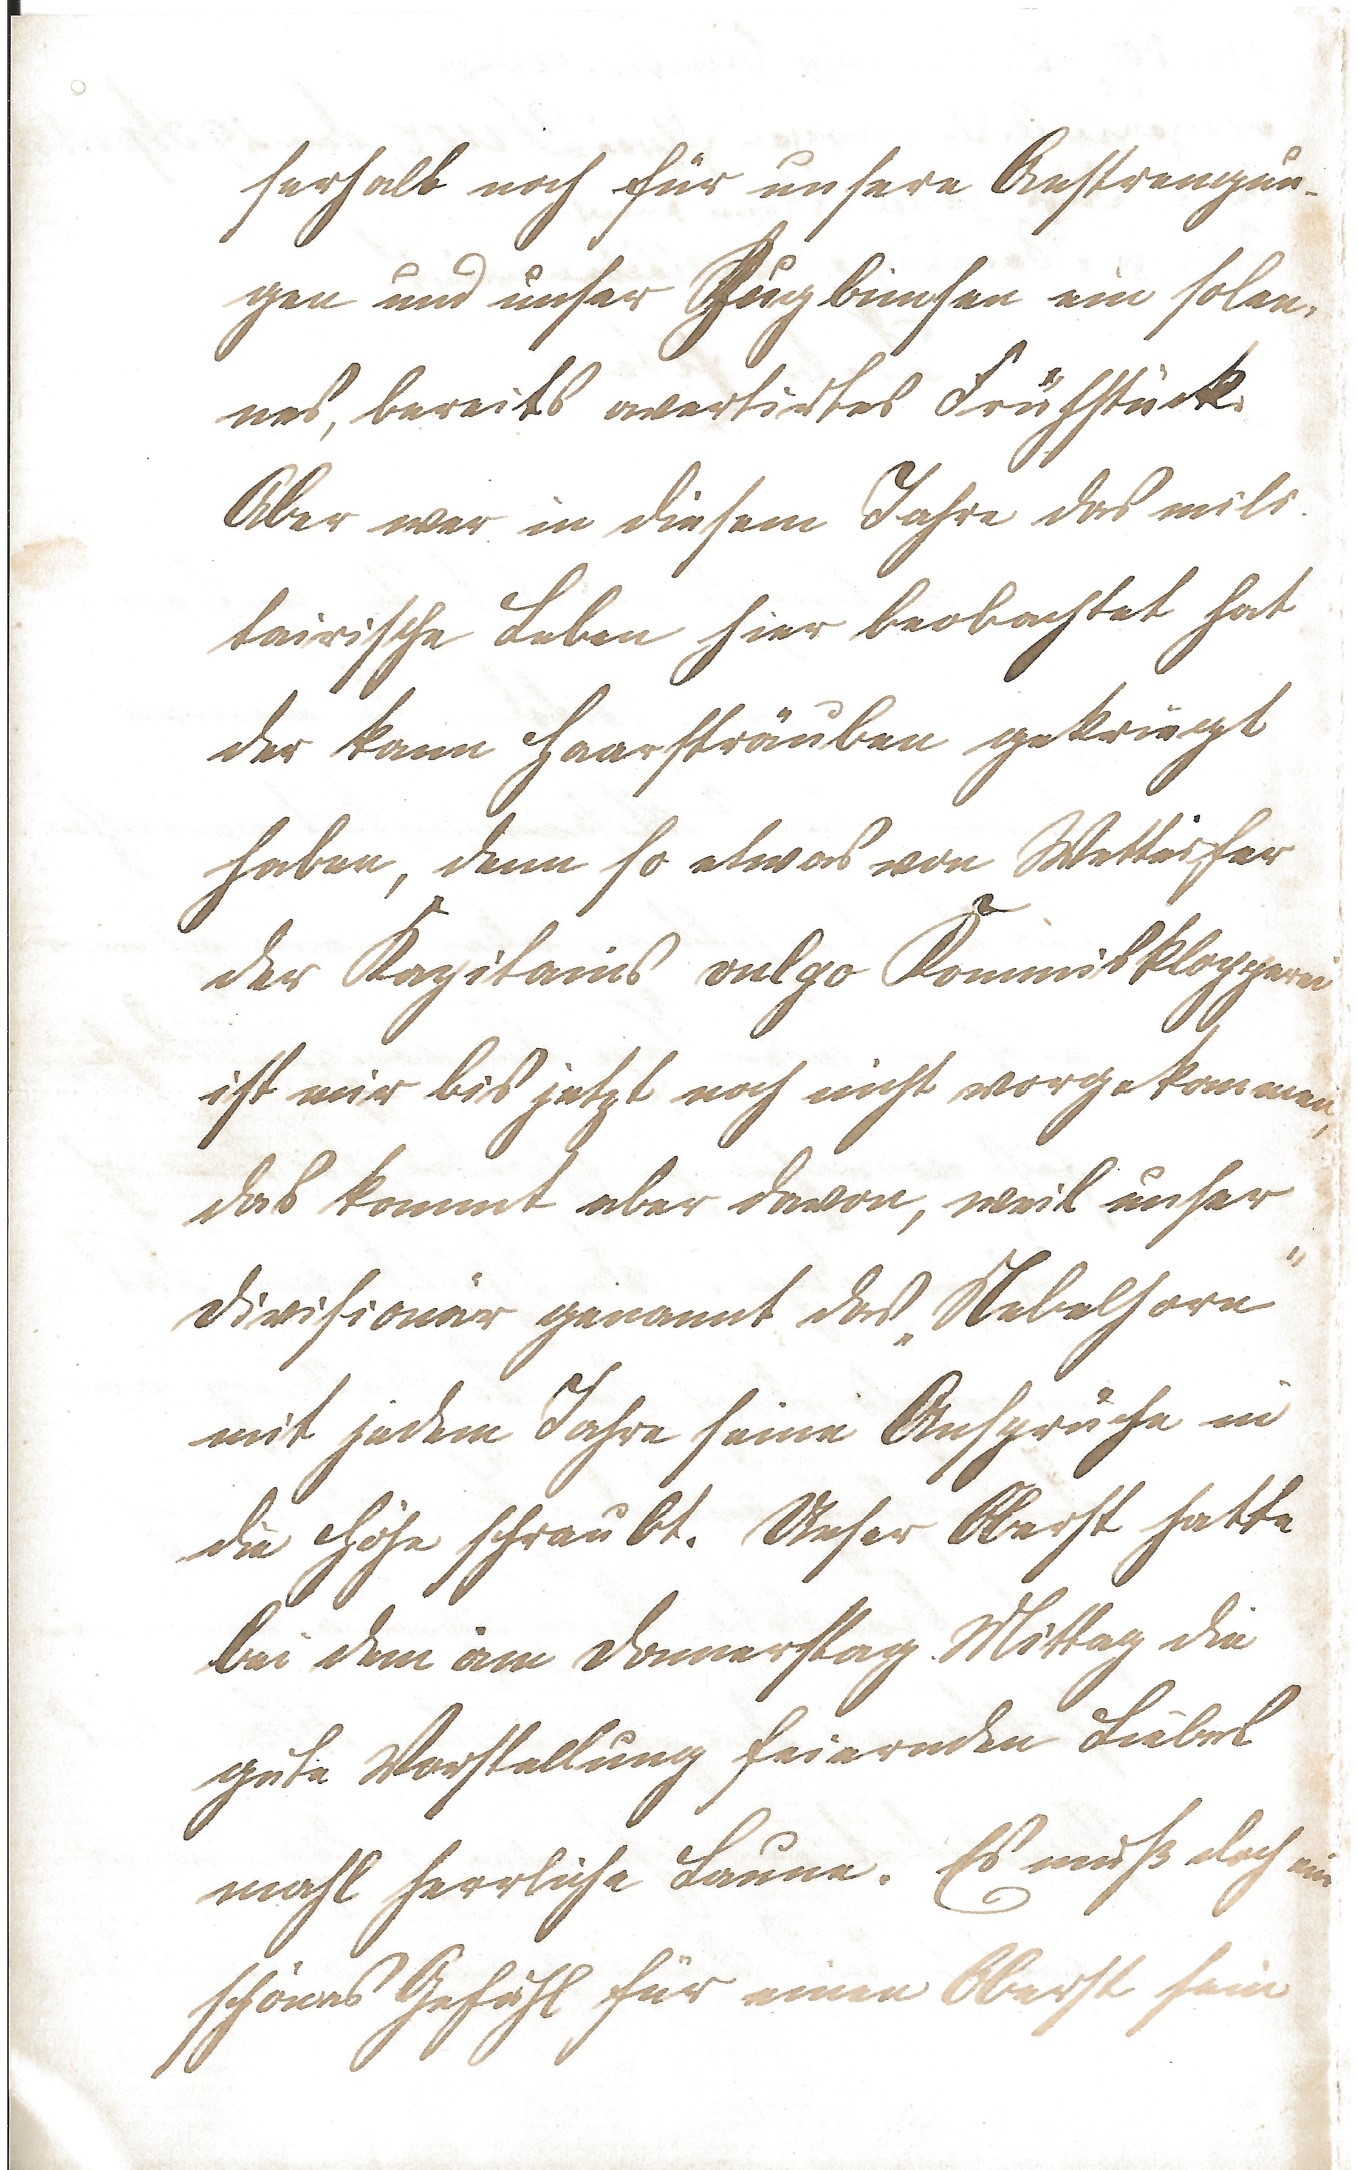 serhalb noch für unsere Anstrengun-
gen und unser Zugbimsen ein solen-
nes, bereits avertirtes Frühstück.
Aber wer in diesem Jahre das mili-
tairische Leben hier beobachtet hat
der kann Haarsträuben gekriegt
haben, denn so etwas von Wetteifer
der Kapitains vulgo Kommißklopperei
ist mir bis jetzt noch nicht vorgekommen,
das kommt aber davon, weil unser
Divisionär genannt das „Nebelhorn"
mit jedem Jahre seine Ansprüche in
die Höhe schraubt. Unser Oberst hatte
bei dem am Donnerstag Mittag die
gute Vorstellung feiernden Liebes
mahl herrliche Laune. Es muß doch ein
schönes Gefühl für einen Oberst sein